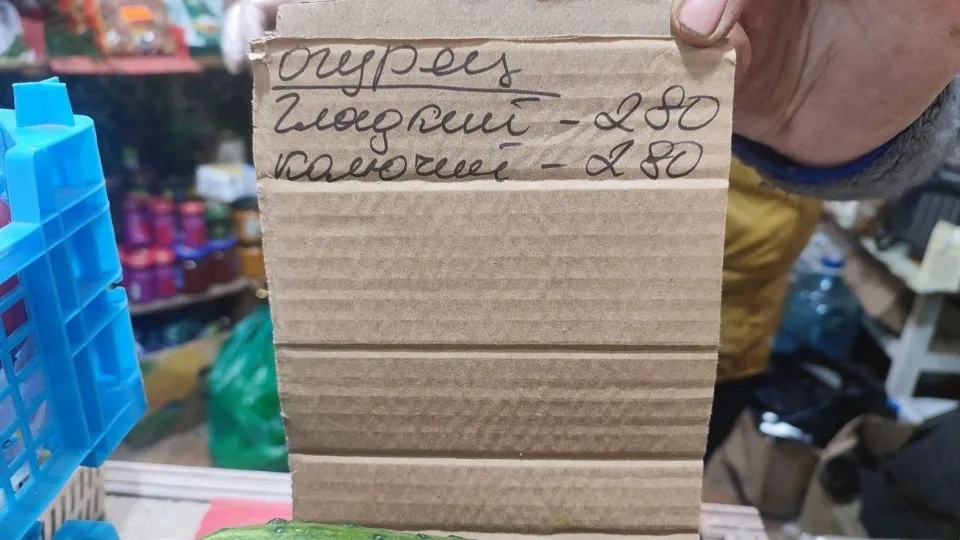 огурец
гладкий - 280
колючий - 280